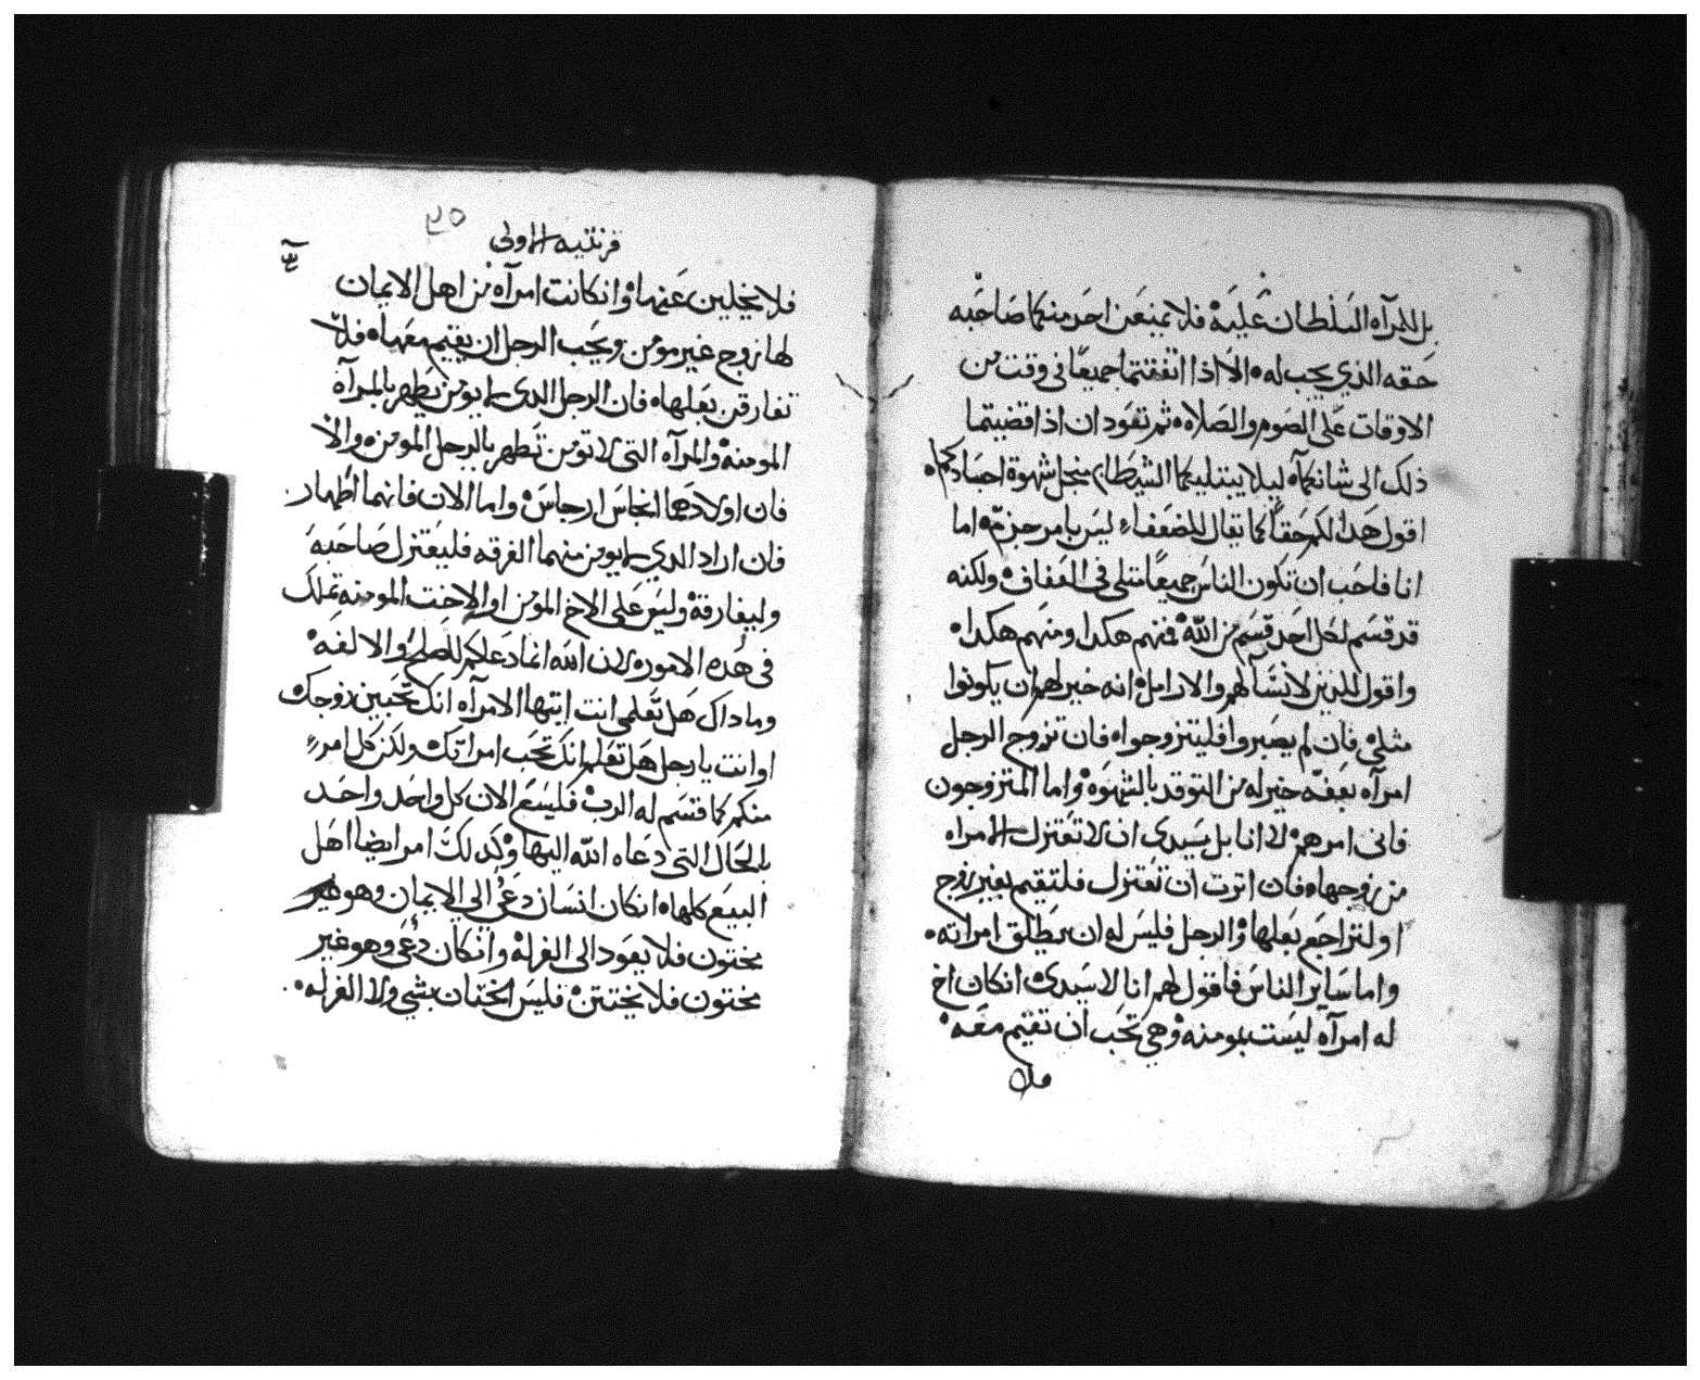 بل للمرآه السلطان عليه فلا يمنعن احد منكما صاحبه
حقه الذي يجب له الا اذا اتفقتما جميعًا في وقت من
الاوقات على الصوم والصلاه ثم تعودان اذا قضيتما
ذلك الى شانكما ليلا يبتليكما الشيطان منجل شهوة اجسادكما
اقول هدا لكم حقًا كما يقال للضعفاء ليس بامر جزم اما
انا فاحب ان تكون الناس جميعًا متلي في العفاف ولكنه
قد قسم لكل احد قسم من الله فمنهم هكدا ومنهم هكدا
واقول للذين لا نسآ لهم والارامل انه خير لهم ان يكونوا
مثلي فان لم يصبروا فليتزوجوا فان تزوج الرجل
امرآه بعفه خير له من التوقد بالشهوة واما المتزوجون
فاني امرهم لا انا بل سيدي ان لا تعتزل الامراه
من زوجها فان اترت ان تعتزل فلتقيم بغير زوج
او لتراجع بعلها والرجل فليس له ان يطلق امراته
واما ساير الناس فاقول لهم انا لا سيدي ان كان اخ
له امرآه ليست بمومنه وهي تحب ان تقيم معه
فلا
قرنتيه الاولى
٢٥
فلا يخلين عنها وان كانت امرآه من اهل الايمان
لها زوج غير مومن ويحب الرجل ان يقيم معها فلا
تفارقن بعلها فان الرجل الدي لا يومن يطهر بالمرآة
المومنه والمرآه التي لا تومن تطهر بالرجل المومن والا
فان اولادهما انجاس ارجاس واما الان فانهما اطهار
فان اراد الدي لا يومن منهما الفرقه فليعتزل صاحبه
وليفارقه وليس على الاخ المومن او الاخت المومنه تملك
في هده الامور لان الله انما دعاكم للصلح والالفه
وما داك هل تعلمي انت ايتها الامرآه انك تحبين زوجك
او انت يا رجل هل تعلم انك تحب امراتك ولكن كل امرء
منكم كما قسم له الرب فليسع الان كل واحد واحد
بالحال التي دعاه الله اليها وكدلك امر ايضا اهل
البيع كلها ان كان انسان دعي الي الايمان وهو غير
مختون فلا يعود الى الغرله وان كان دعي وهو غير
مختون فلا يختتن فليس الختان بشي ولا الغرله